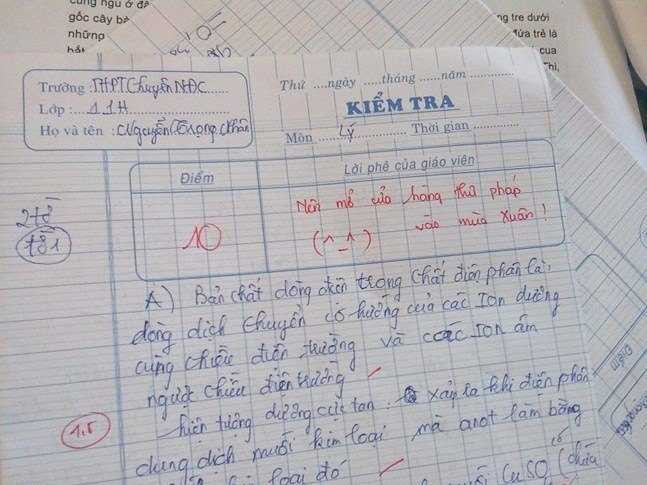 cùng ngủ ở đâ
gốc cây bà
những
hát
ng tre dưới
đứa trẻ là
cua
Trường : THPT Chuyên NĐC
Lớp : 11H
Họ và tên : Nguyễn Trọng Nhân
Thứ ....ngày .....tháng ......năm
KIỂM TRA
Môn Lý Thời gian
Điểm
Lời phê của giáo viên
10
Nên mở cửa hàng thư pháp
(^_^) vào mùa xuân !
278
A) Bản chất dòng điện trong chất điện phân là:
dòng dịch chuyển có hướng của các Ion dương
cùng chiều điện trường và các Ion âm
ngược chiều điện trường
hiện tượng dương cực tan: xảy ra khi điện phân
1.5
dung dịch muối kim loại mà anot làm bằng
loại đó
CuSO (chứa
Điểm